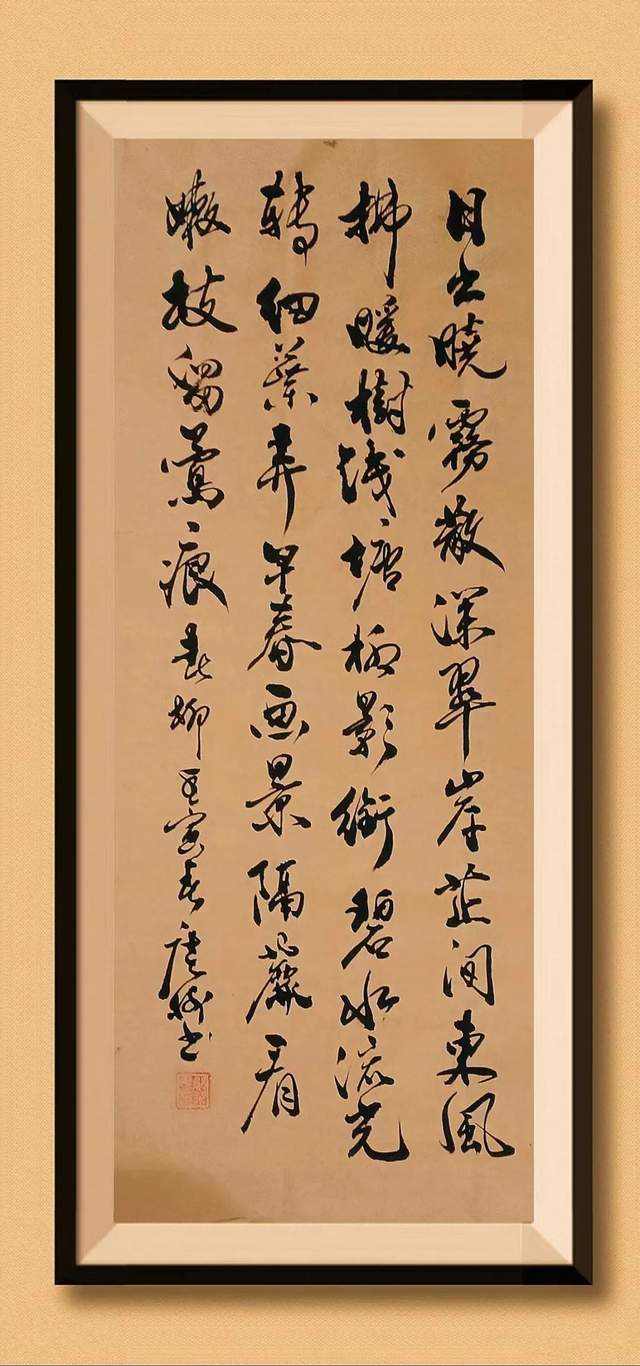 日出曉霧散深翠岸芷间東風
拂暖樹浅塘柳影銜碧水流光
轉細葉弄早春画景隔簾看
嫩枝留鶯痕春柳壬寅春书